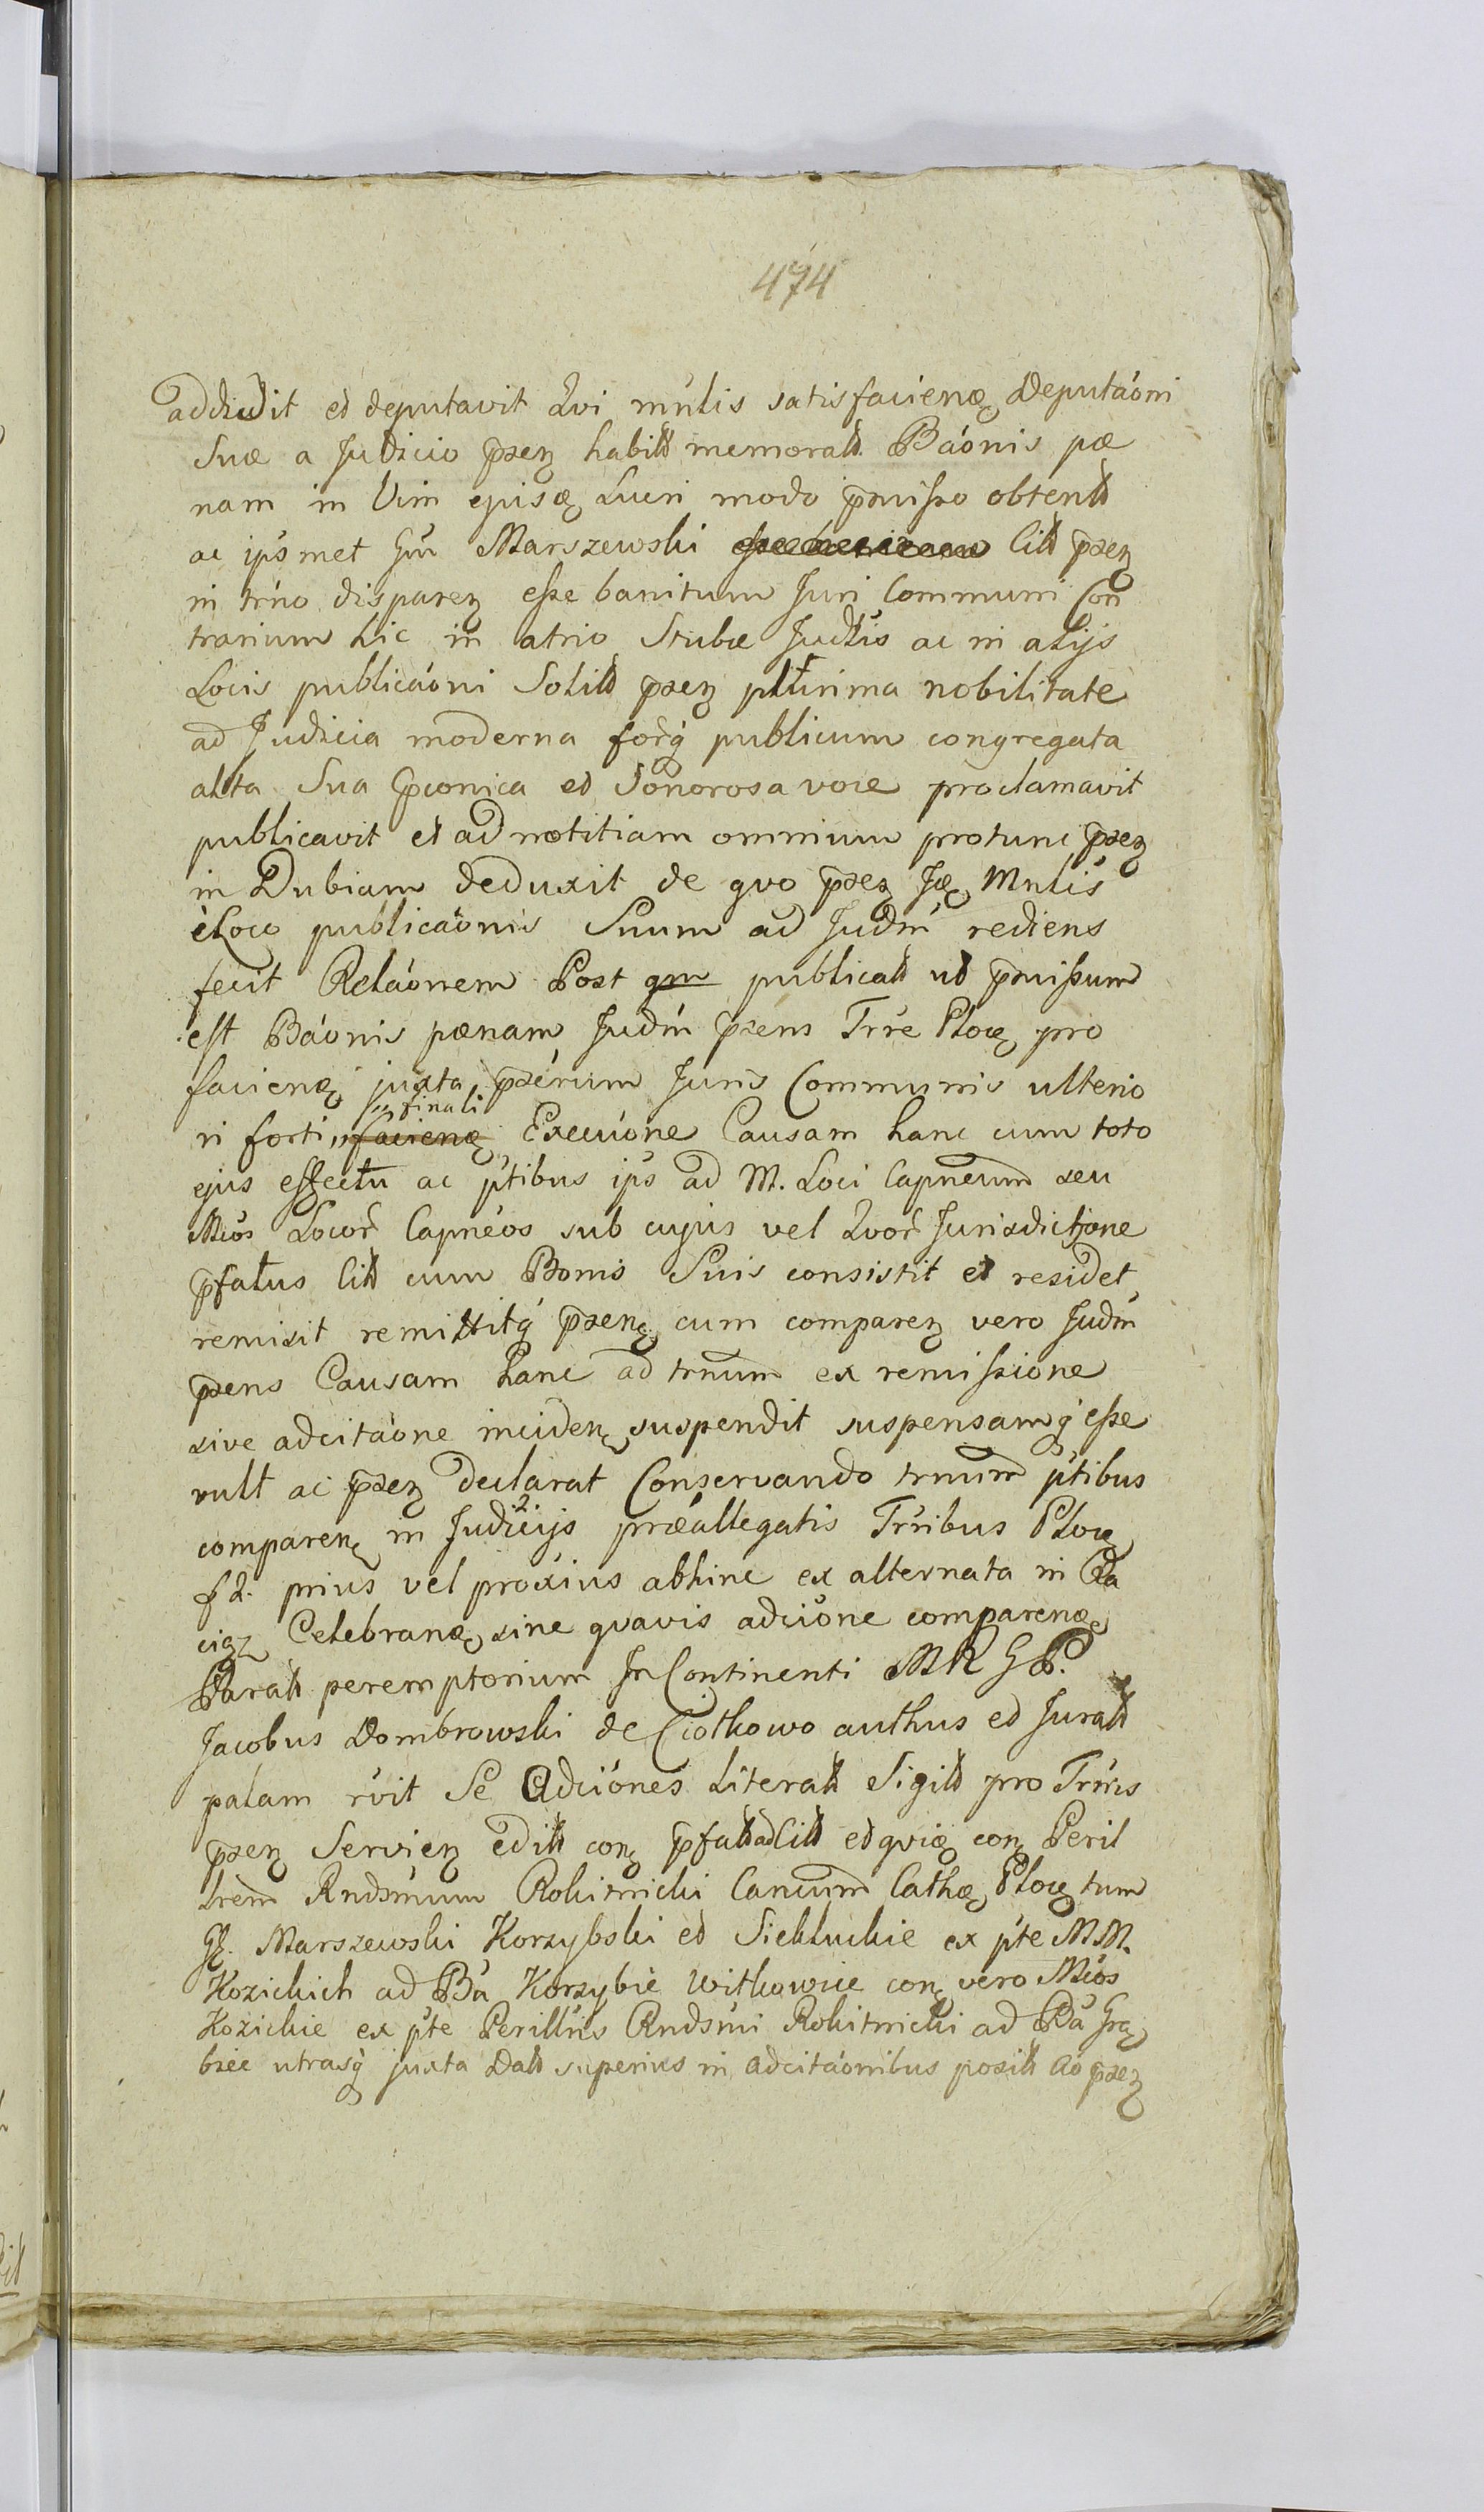 474
addidit et deputavit Qvi mnlis satisfacienæ Deputáoni
Suæ a Judicio pzez habitt memoratt Báonis pæ
nam in Vim ejusæ Lucri modo pmisso obtentt
ac ips met Gń Marszewski Citt pzez
in trno disparez esse banitum Juri Communi Con
trarium hic in atrio Stubæ Judlis ac in alijs
Locis publicáoni Solitt pzez plurima nobilitate
ad Judicia moderna forq́ publicum congregata
alta Sua pconica et Sonorosa voce proclamavit
publicavit et ad notitiam omnium protunc pzez
in Dubiam deduxit de qvo pzez Jæ Mnlis
è Loco publicaónis Suum ad Judm rediens
fecit Reláonem Post qm publicatt ut pmissum
est Báonis pœnam Judm pzens Trre Ploc̨ pro
facienæ juxta pzérium Juris Communis ulterio
ri forti „ finali facienæ Execuóne Causam hanc cum toto
ejus effectu ac ptibus ips ad M. Loci Capneum seu
Mcos Locor Capnéos sub cujus vel Qvor Jurisdictione
pfatus Citt cum Bonis Suis consistit et residet
remisit remittitq́ pzenę cum comparez vero Judm
pzens Causam hanc ad trnum ex remissione
sive adcitáone inciden̨ suspendit suspensamq́ esse
vult ac pzez declarat Conservando trnum ptibus
comparen̨ in Judicijs præállegatis Trribus Ploc̨
f 2. prius vel proxius abhinc ex alternata in Ra
ciąz Celebranæ sine qvavis adcióne comparenæ
Paratt peremptorium In Continenti MRGP.
Jacobus Dombrowski de Ciotkowo authus et Juratt
palam rvit Se Adciónes Literatt Sigitt pro Trris
pzez Serviez editt con̨ pfatt ad Citt et qviæ con̨ Peril
lrem Rndsmum Rokitnicki Cancum Cathæ Ploc̨ tum
GG. Marszewski Korzybski et Siekluckie ex pte MM.
Kozickich ad Bá Korzybie Witkowice con̨ vero Mcos
Kozickie ex pte Perillris Rndsmi Rokitnicki ad Bá Grę
bzce utrasq́ juxta Datt superius in adcitáonibus positt Aó pzez